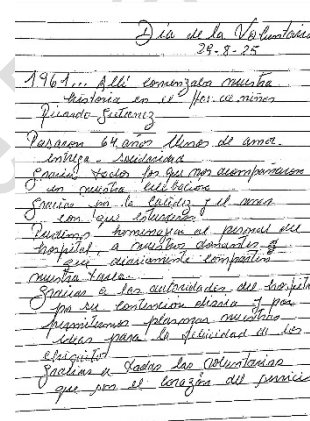 Día de la Voluntaria
29-8-25
1961... Allí comenzaba nuestra
historia en el Hos. de niños
Ricardo Gutierrez
Pasaron 64 años llenos de amor
entrega - solidaridad
Gracias todos los que nos acompañaron
en nuestra celebración
Gracias por la calidez y el amor
con que
Rendimos homenaje al personal del
hospital, a nuestros donantes y
que diariamente comparten
nuestra tarea.
Gracias a las autoridades del hospital
por su contención diaria y por
permitirnos plasmar nuestras
ideas para la felicidad de los
chiquitos
Gracias a todas las voluntarias
que son el corazón del servicio